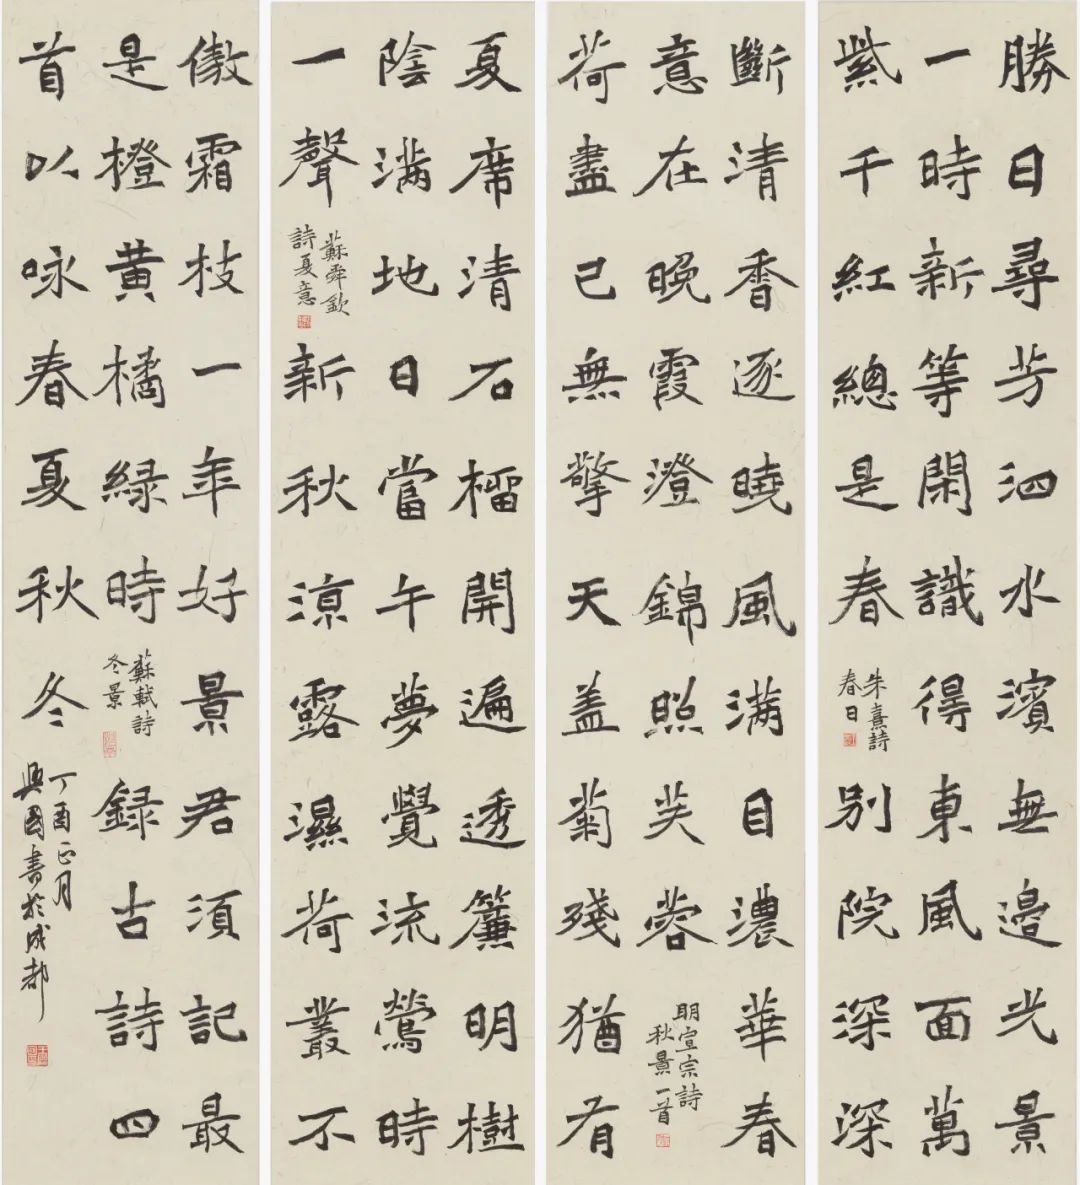 勝日尋芳泗水濱無邊光景
一時新等閑識得東風面萬
紫千紅總是春
朱熹詩
春日
別院深深
斷清香逐曉風滿目濃華春
意在晚霞澄錦照芙蓉
明宣宗詩
秋景一首
荷盡已無擎天盖菊殘猶有
夏席清石榴開遍透簾明樹
陰滿地日當午夢覺流鶯時
一聲
蘇舜欽
詩夏意
新秋涼露濕荷叢不
傲霜枝一年好景君須記最
是橙黃橘緑時
蘇軾詩
冬景
録古詩四
首以咏春夏秋冬
丁酉正月
興國書於成都